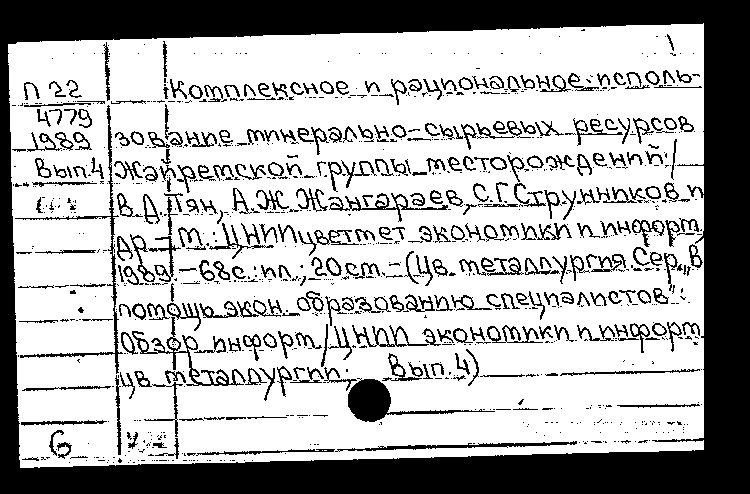 П 22 Комплексное и рациональное исполь-
4779
1989 зование минерально-сырьевых ресурсов
Вып.4 Жайремской группы месторождений /
В.Д. Пян, А.Ж. Жангараев, С.Г. Струнников и
др. — М.: ЦНИИцветмет экономики и информ.,
1989. — 68с.: ил.; 20см. — (Цв. металлургия. Сер. „В
помощь экон. образованию специалистов":
Обзор. информ. / ЦНИИ экономики и информ.
цв. металлургии; Вып. 4)
6